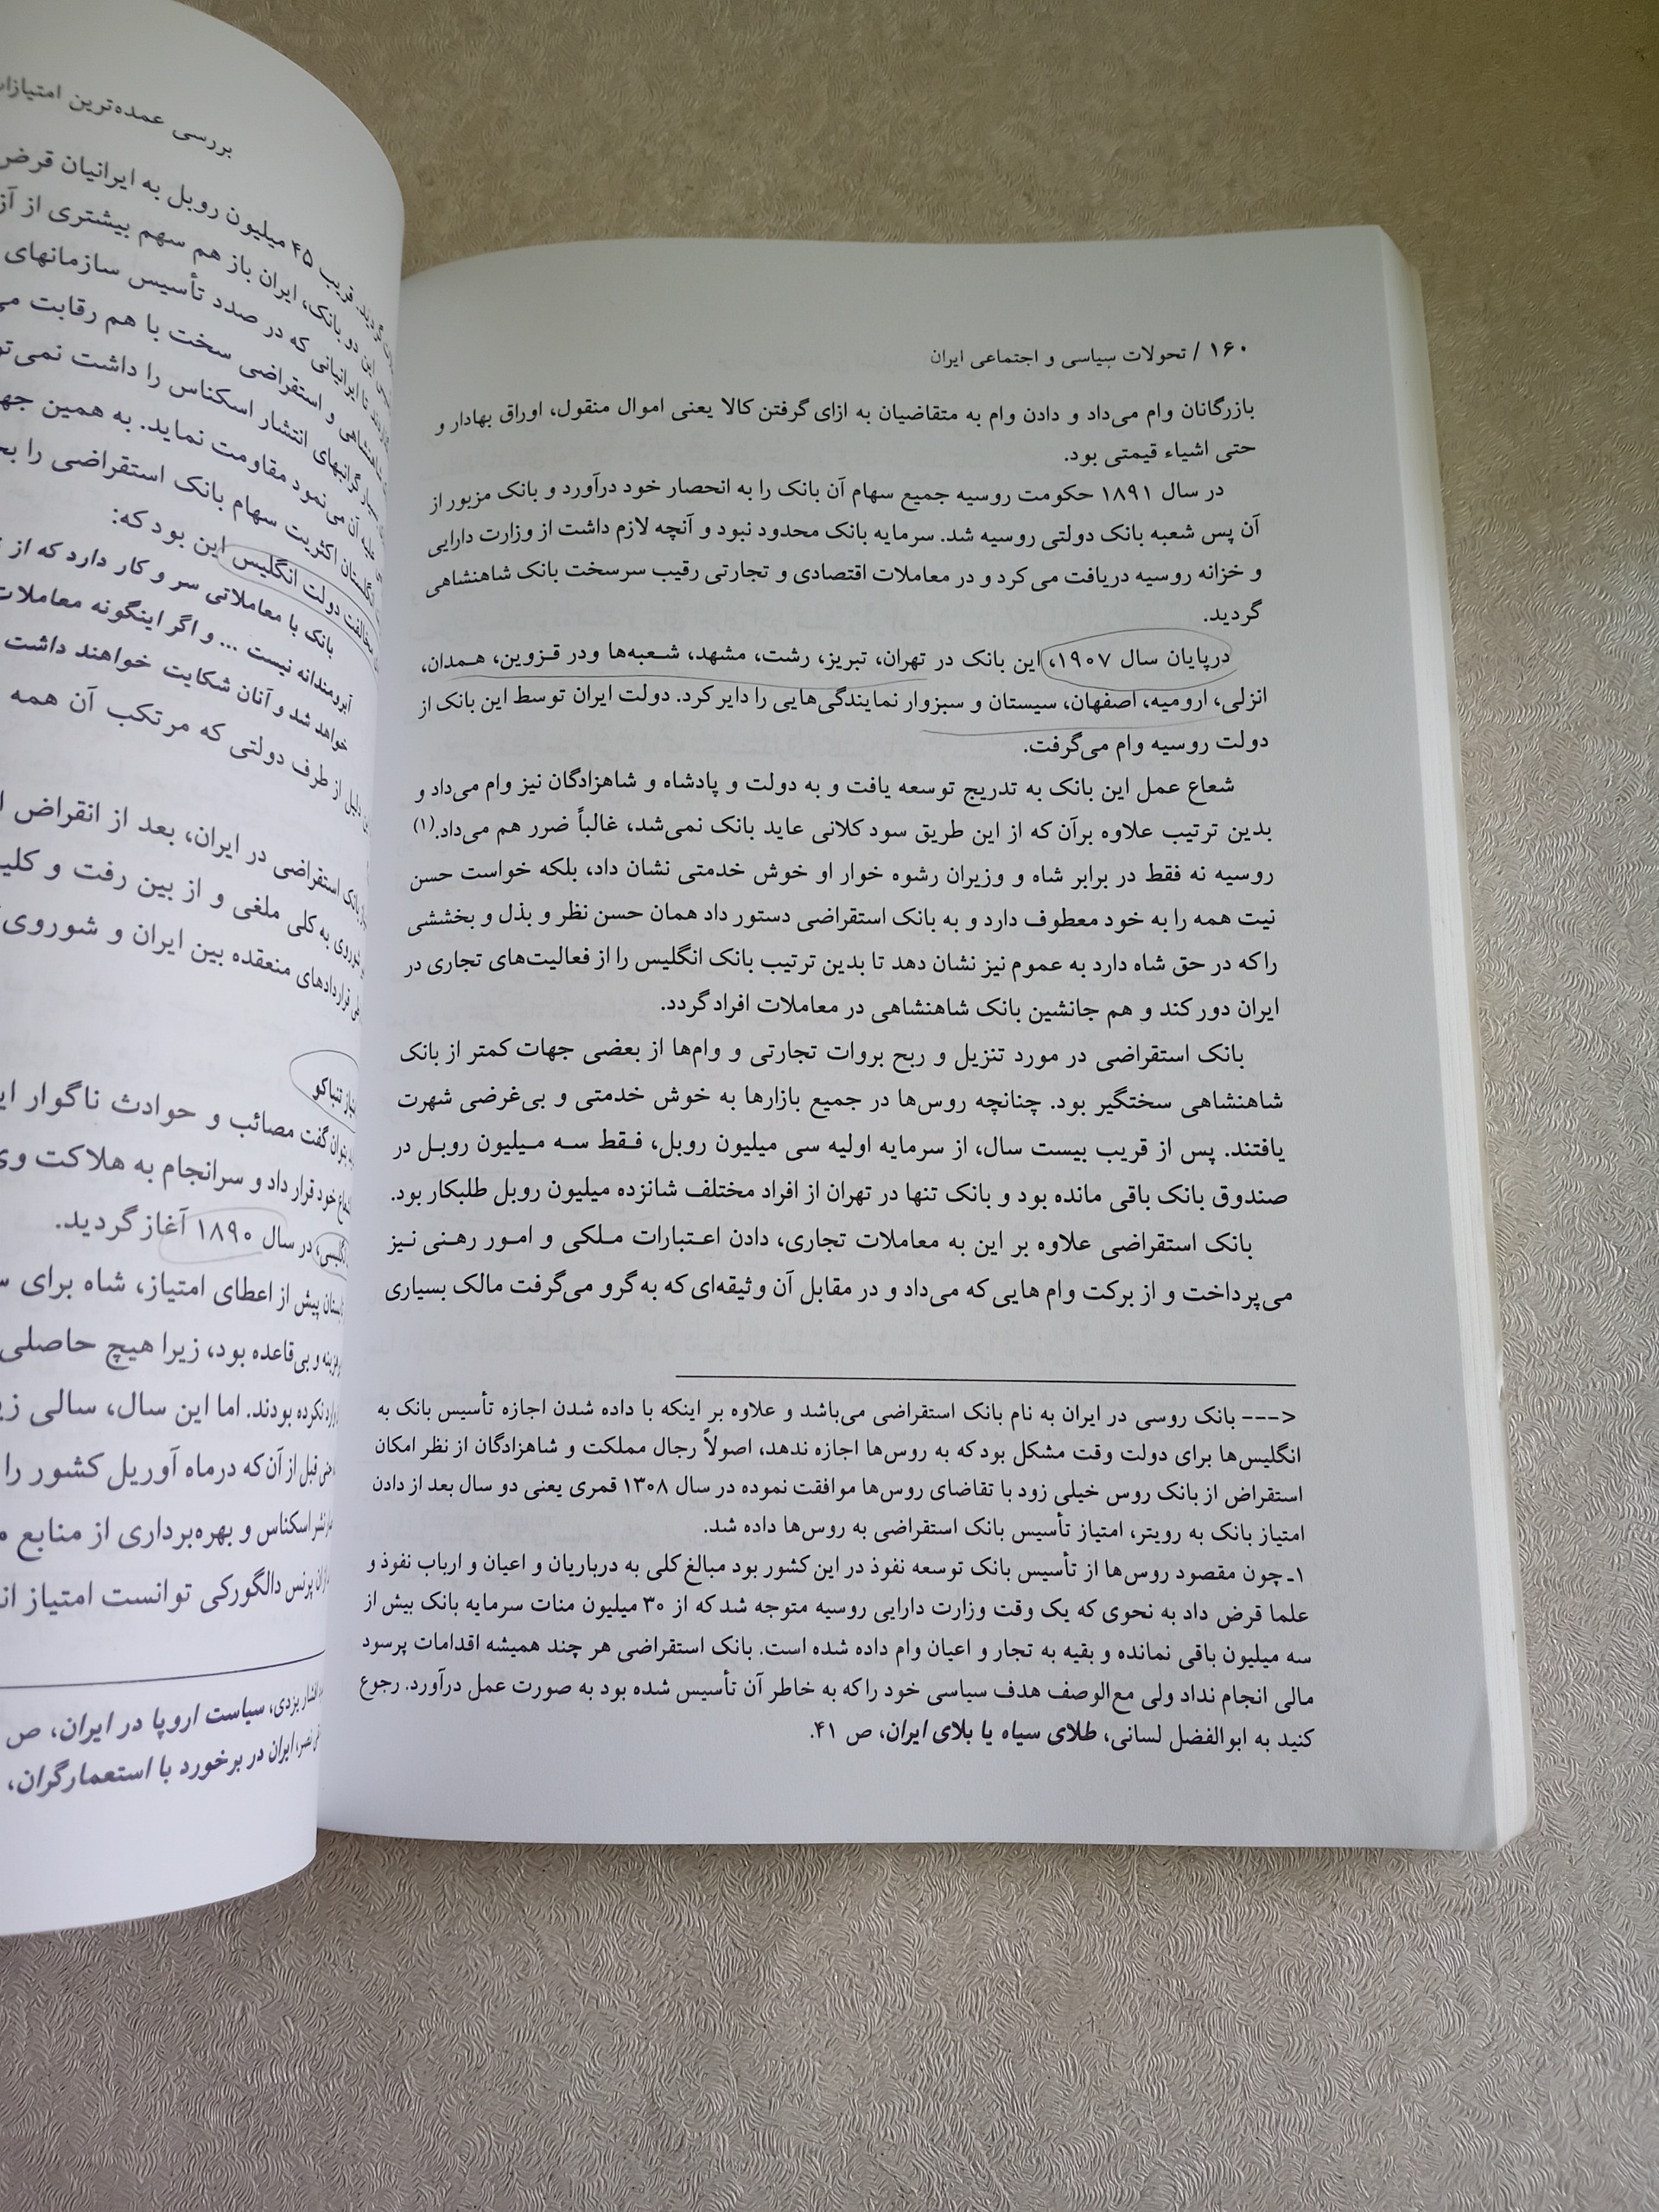 ۱۶۰ / تحولات سیاسی و اجتماعی ایران
بازرگانان وام می‌داد و دادن وام به متقاضیان به ازای گرفتن کالا یعنی اموال منقول، اوراق بهادار و
حتی اشیاء قیمتی بود.
در سال ۱۸۹۱ حکومت روسیه جمیع سهام آن بانک را به انحصار خود درآورد و بانک مزبور از
آن پس شعبه بانک دولتی روسیه شد. سرمایه بانک محدود نبود و آنچه لازم داشت از وزارت دارایی
و خزانه روسیه دریافت می‌کرد و در معاملات اقتصادی و تجارتی رقیب سرسخت بانک شاهنشاهی
گردید.
درپایان سال ۱۹۰۷، این بانک در تهران، تبریز، رشت، مشهد، شعبه‌ها ودر قزوین، همدان،
انزلی، ارومیه، اصفهان، سیستان و سبزوار نمایندگی‌هایی را دایر کرد. دولت ایران توسط این بانک از
دولت روسیه وام می‌گرفت.
شعاع عمل این بانک به تدریج توسعه یافت و به دولت و پادشاه و شاهزادگان نیز وام می‌داد و
بدین ترتیب علاوه برآن که از این طریق سود کلانی عاید بانک نمی‌شد، غالباً ضرر هم می‌داد.(۱)
روسیه نه فقط در برابر شاه و وزیران رشوه خوار او خوش خدمتی نشان داد، بلکه خواست حسن
نیت همه را به خود معطوف دارد و به بانک استقراضی دستور داد همان حسن نظر و بذل و بخششی
را که در حق شاه دارد به عموم نیز نشان دهد تا بدین ترتیب بانک انگلیس را از فعالیت‌های تجاری در
ایران دور کند و هم جانشین بانک شاهنشاهی در معاملات افراد گردد.
بانک استقراضی در مورد تنزیل و ربح بروات تجارتی و وام‌ها از بعضی جهات کمتر از بانک
شاهنشاهی سختگیر بود. چنانچه روس‌ها در جمیع بازارها به خوش خدمتی و بی‌غرضی شهرت
یافتند. پس از قریب بیست سال، از سرمایه اولیه سی میلیون روبل، فقط سه میلیون روبل در
صندوق بانک باقی مانده بود و بانک تنها در تهران از افراد مختلف شانزده میلیون روبل طلبکار بود.
بانک استقراضی علاوه بر این به معاملات تجاری، دادن اعتبارات ملکی و امور رهنی نیز
می‌پرداخت و از برکت وام هایی که می‌داد و در مقابل آن وثیقه‌ای که به گرو می‌گرفت مالک بسیاری
<--- بانک روسی در ایران به نام بانک استقراضی می‌باشد و علاوه بر اینکه با داده شدن اجازه تأسیس بانک به
انگلیس‌ها برای دولت وقت مشکل بود که به روس‌ها اجازه ندهد، اصولاً رجال مملکت و شاهزادگان از نظر امکان
استقراض از بانک روس خیلی زود با تقاضای روس‌ها موافقت نموده در سال ۱۳۰۸ قمری یعنی دو سال بعد از دادن
امتیاز بانک به رویتر، امتیاز تأسیس بانک استقراضی به روس‌ها داده شد.
۱ـ چون مقصود روس‌ها از تأسیس بانک توسعه نفوذ در این کشور بود مبالغ کلی به درباریان و اعیان و ارباب نفوذ و
علما قرض داد به نحوی که یک وقت وزارت دارایی روسیه متوجه شد که از ۳۰ میلیون منات سرمایه بانک بیش از
سه میلیون باقی نمانده و بقیه به تجار و اعیان وام داده شده است. بانک استقراضی هر چند همیشه اقدامات پرسود
مالی انجام نداد ولی مع‌الوصف هدف سیاسی خود را که به خاطر آن تأسیس شده بود به صورت عمل درآورد. رجوع
کنید به ابوالفضل لسانی، طلای سیاه یا بلای ایران، ص ۴۱.
بررسی عمده‌ترین
قریب ۴۵ میلیون روبل به ایرانیان قرض
این دو بانک، ایران باز هم سهم بیشتری از
تا ایرانیانی که در صدد تأسیس سازمانهای
و استقراضی سخت با هم رقابت
گرانبهای انتشار اسکناس را داشت
آن می‌نمود مقاومت نماید. به همین
اکثریت سهام بانک استقراضی را
مخالفت دولت انگلیس این بود که:
بانک با معاملاتی سر و کار دارد که از
آبرومندانه نیست ... و اگر اینگونه معاملات
خواهد شد و آنان شکایت خواهند داشت
از طرف دولتی که مرتکب آن همه
بانک استقراضی در ایران، بعد از انقراض
به کلی ملغی و از بین رفت و
قراردادهای منعقده بین ایران و شوروی
تنباکو
گفت مصائب و حوادث ناگوار
خود قرار داد و سرانجام به هلاکت
در سال ۱۸۹۰ آغاز گردید.
پیش از اعطای امتیاز، شاه برای
و بی‌قاعده بود، زیرا هیچ حاصلی
نکرده بودند. اما این سال، سالی
قبل از آن که درماه آوریل کشور را
نشر اسکناس و بهره‌برداری از منابع
پرنس دالگورکی توانست امتیاز
سیاست اروپا در ایران، ص
ایران در برخورد با استعمارگران،